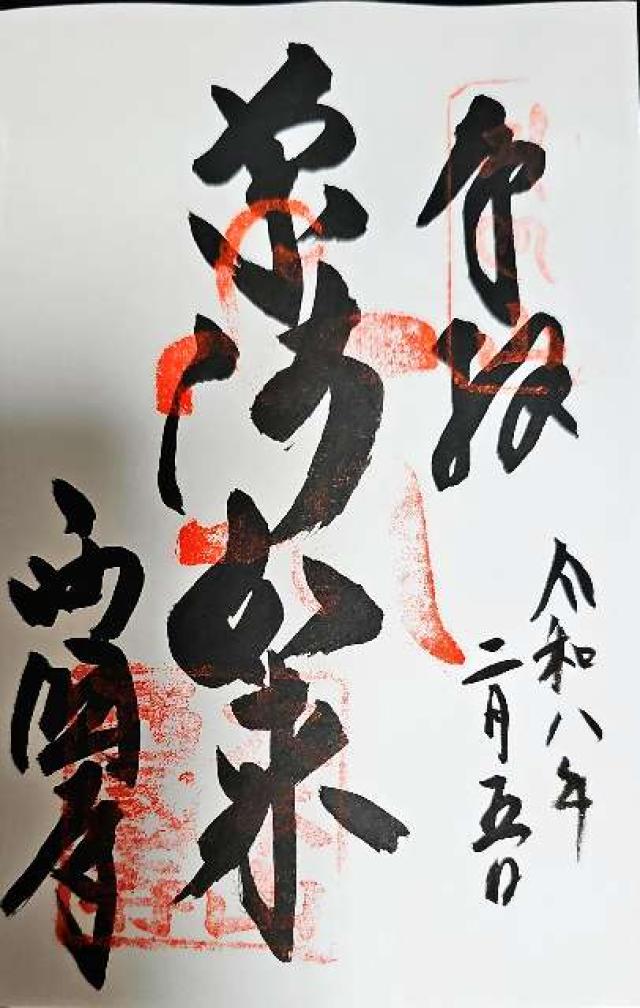 奉拝
令和八年
二月五日
薬師如来
西明寺